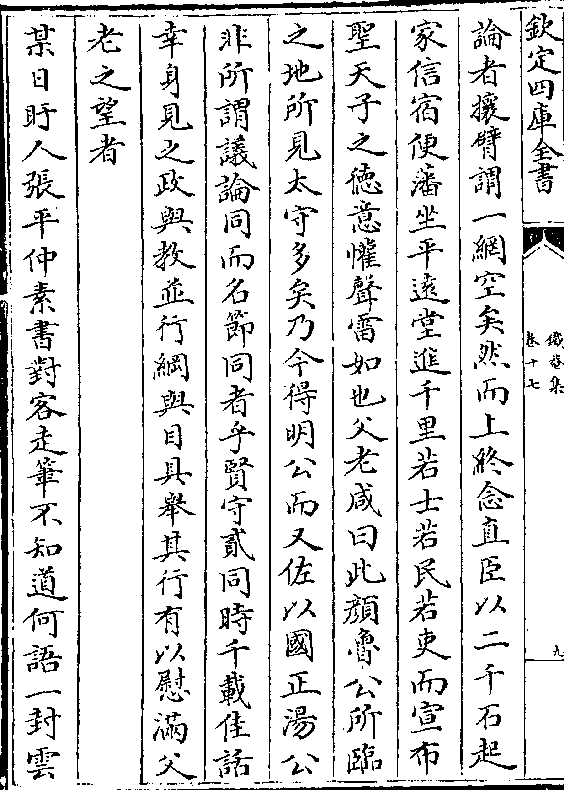 欽定四庫全書
鐵菴集
卷十七
九
論者攘臂謂一網空矣然而上終念直臣以二千石起
家信宿便藩坐平遠堂進千里若士若民若吏而宣布
聖天子之徳意懽聲雷如也父老咸曰此顔魯公所臨
之地所見太守多矣乃今得明公而又佐以國正湯公
非所謂議論同而名節同者乎賢守貳同時千載佳話
幸身見之政與教並行綱與目具舉其行有以慰滿父
老之望者
某日盱人張平仲素書對客走筆不知道何語一封雲